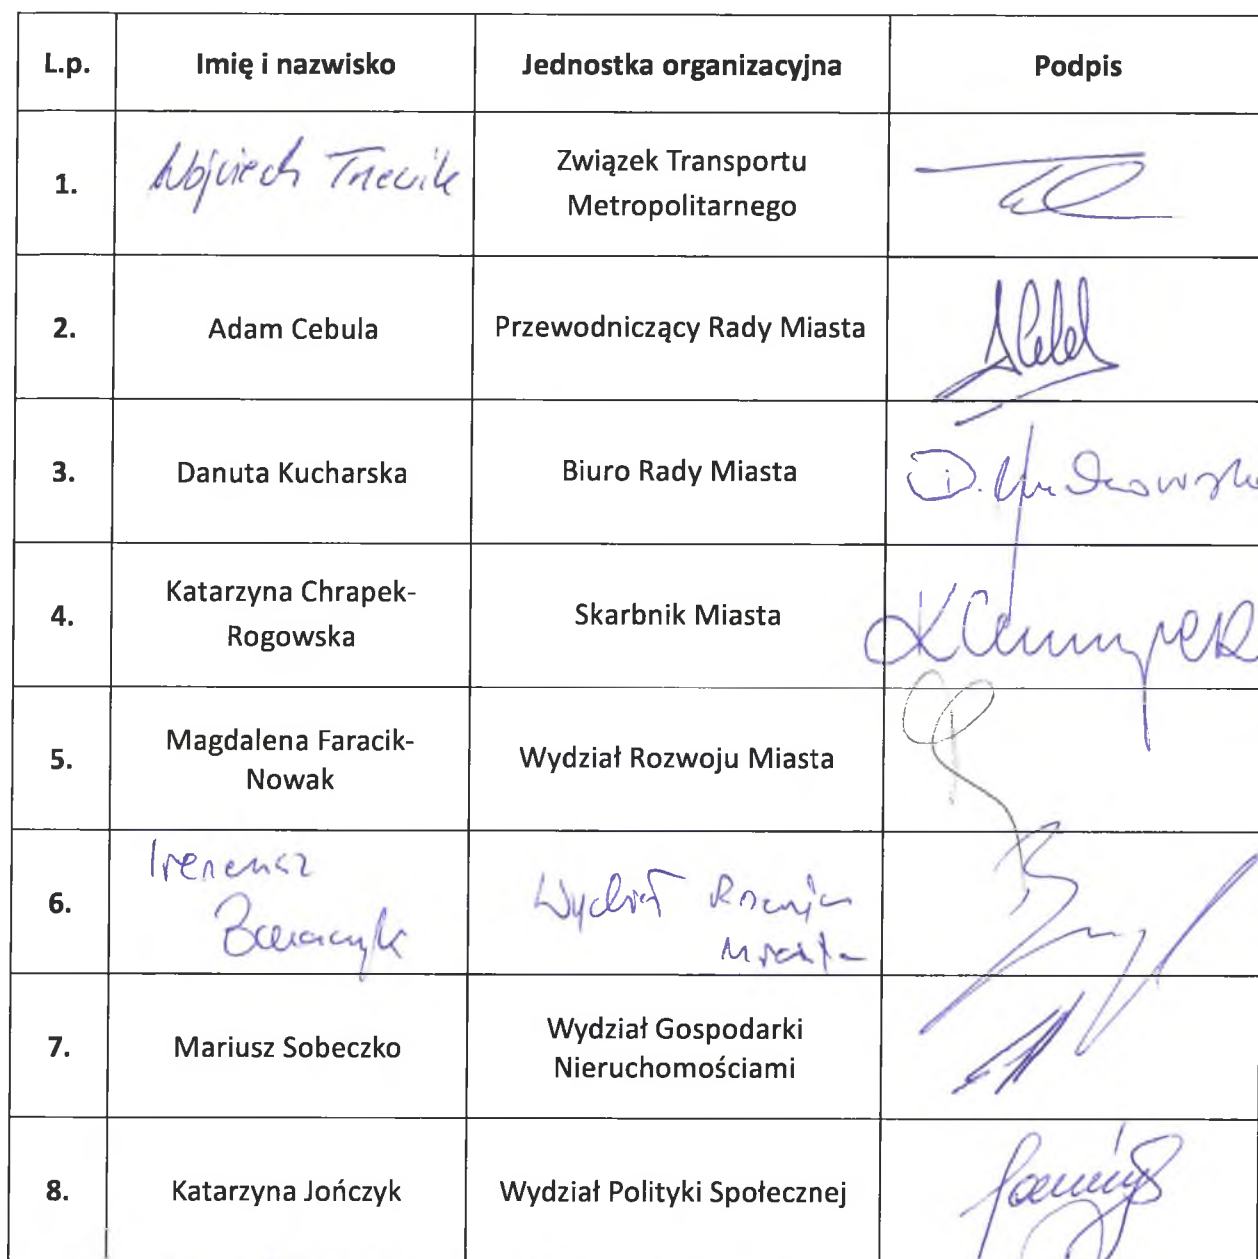 L.p. Imię i nazwisko Jednostka organizacyjna Podpis
1. Wojciech Związek Transportu
Metropolitarnego
2. Adam Cebula Przewodniczący Rady Miasta
3. Danuta Kucharska Biuro Rady Miasta
4. Katarzyna Chrapek-
Rogowska Skarbnik Miasta
5. Magdalena Faracik-
Nowak Wydział Rozwoju Miasta
6. Ireneusz
Wydział Rozwoju
Miasta
7. Mariusz Sobeczko Wydział Gospodarki
Nieruchomościami
8. Katarzyna Jończyk Wydział Polityki Społecznej